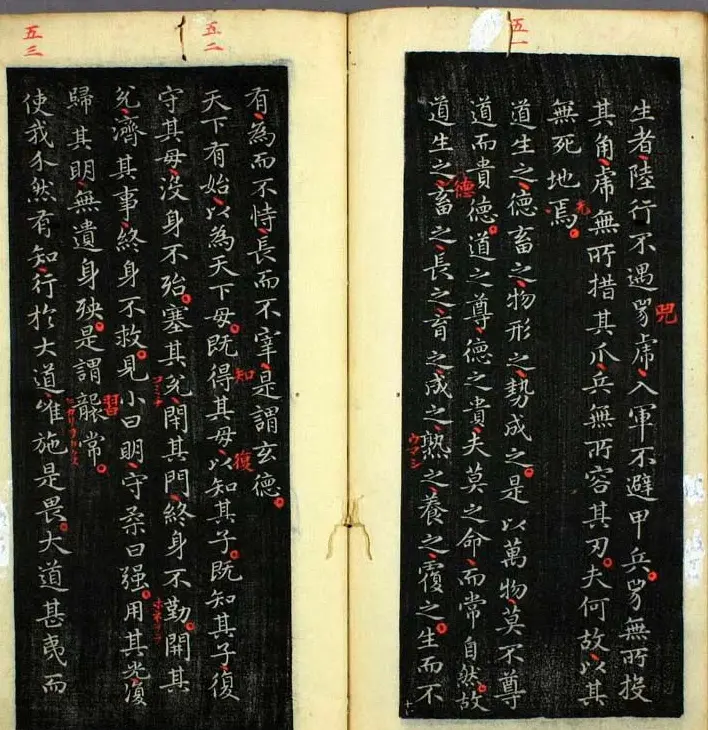 五一
生者陸行不遇兕虎入軍不避甲兵兕無所投
兕
其角虎無所措其爪兵無所容其刃夫何故以其
無死地焉
道生之德畜之物形之勢成之是以萬物莫不尊
道而貴德道之尊德之貴夫莫之命而常自然故
德
道生之畜之長之育之成之熟之養之覆之生而不
ウマシ
五二
有為而不恃長而不宰是謂玄德
天下有始以為天下母既得其母以知其子既知其子復
知
復
守其母沒身不殆塞其兌閉其門終身不勤開其
兌濟其事終身不救見小曰明守柔曰强用其光復
歸其明無遺身殃是謂襲常
習
五三
使我介然有知行於大道唯施是畏大道甚夷而